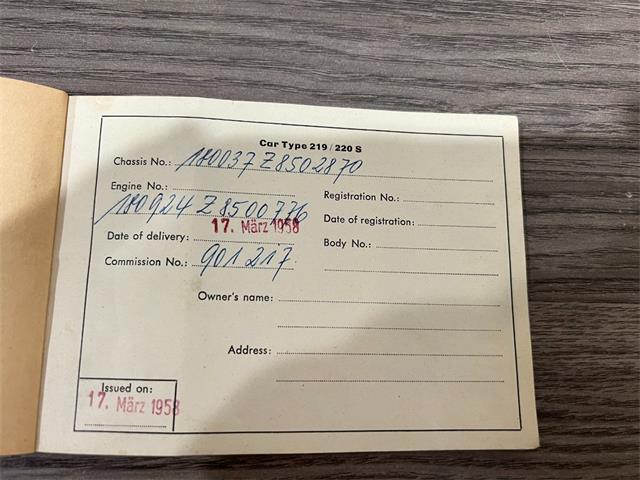 Car Type 219/220 S
Chassis No.: 180037 Z 8502870
Engine No.:
180924 Z 8500776
Registration No.:
17. März 1958
Date of registration:
Date of delivery:
Body No.:
Commission No.: 901217.
Owner's name:
Address:
Issued on:
17. März 1958